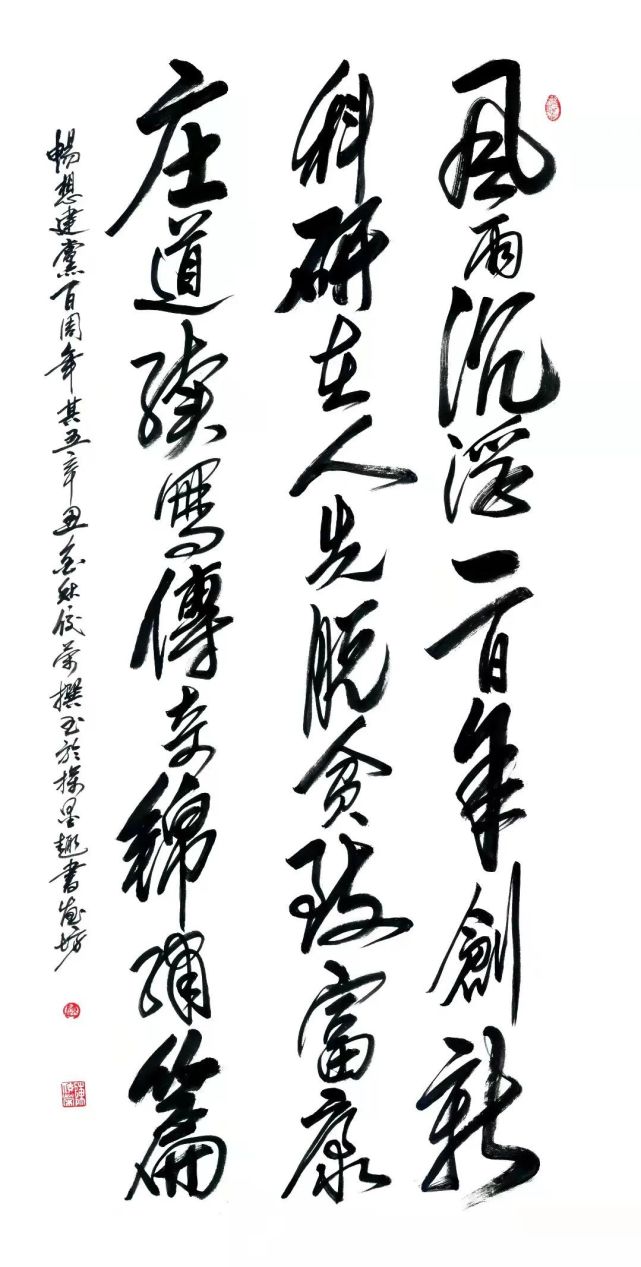 風雨沉浮一百年創新
科研在人先脱貧致富康
庄道續寫傳奇錦绣篇
暢想建黨百周年其五辛丑金秋俊荣撰书於墨趣書画坊